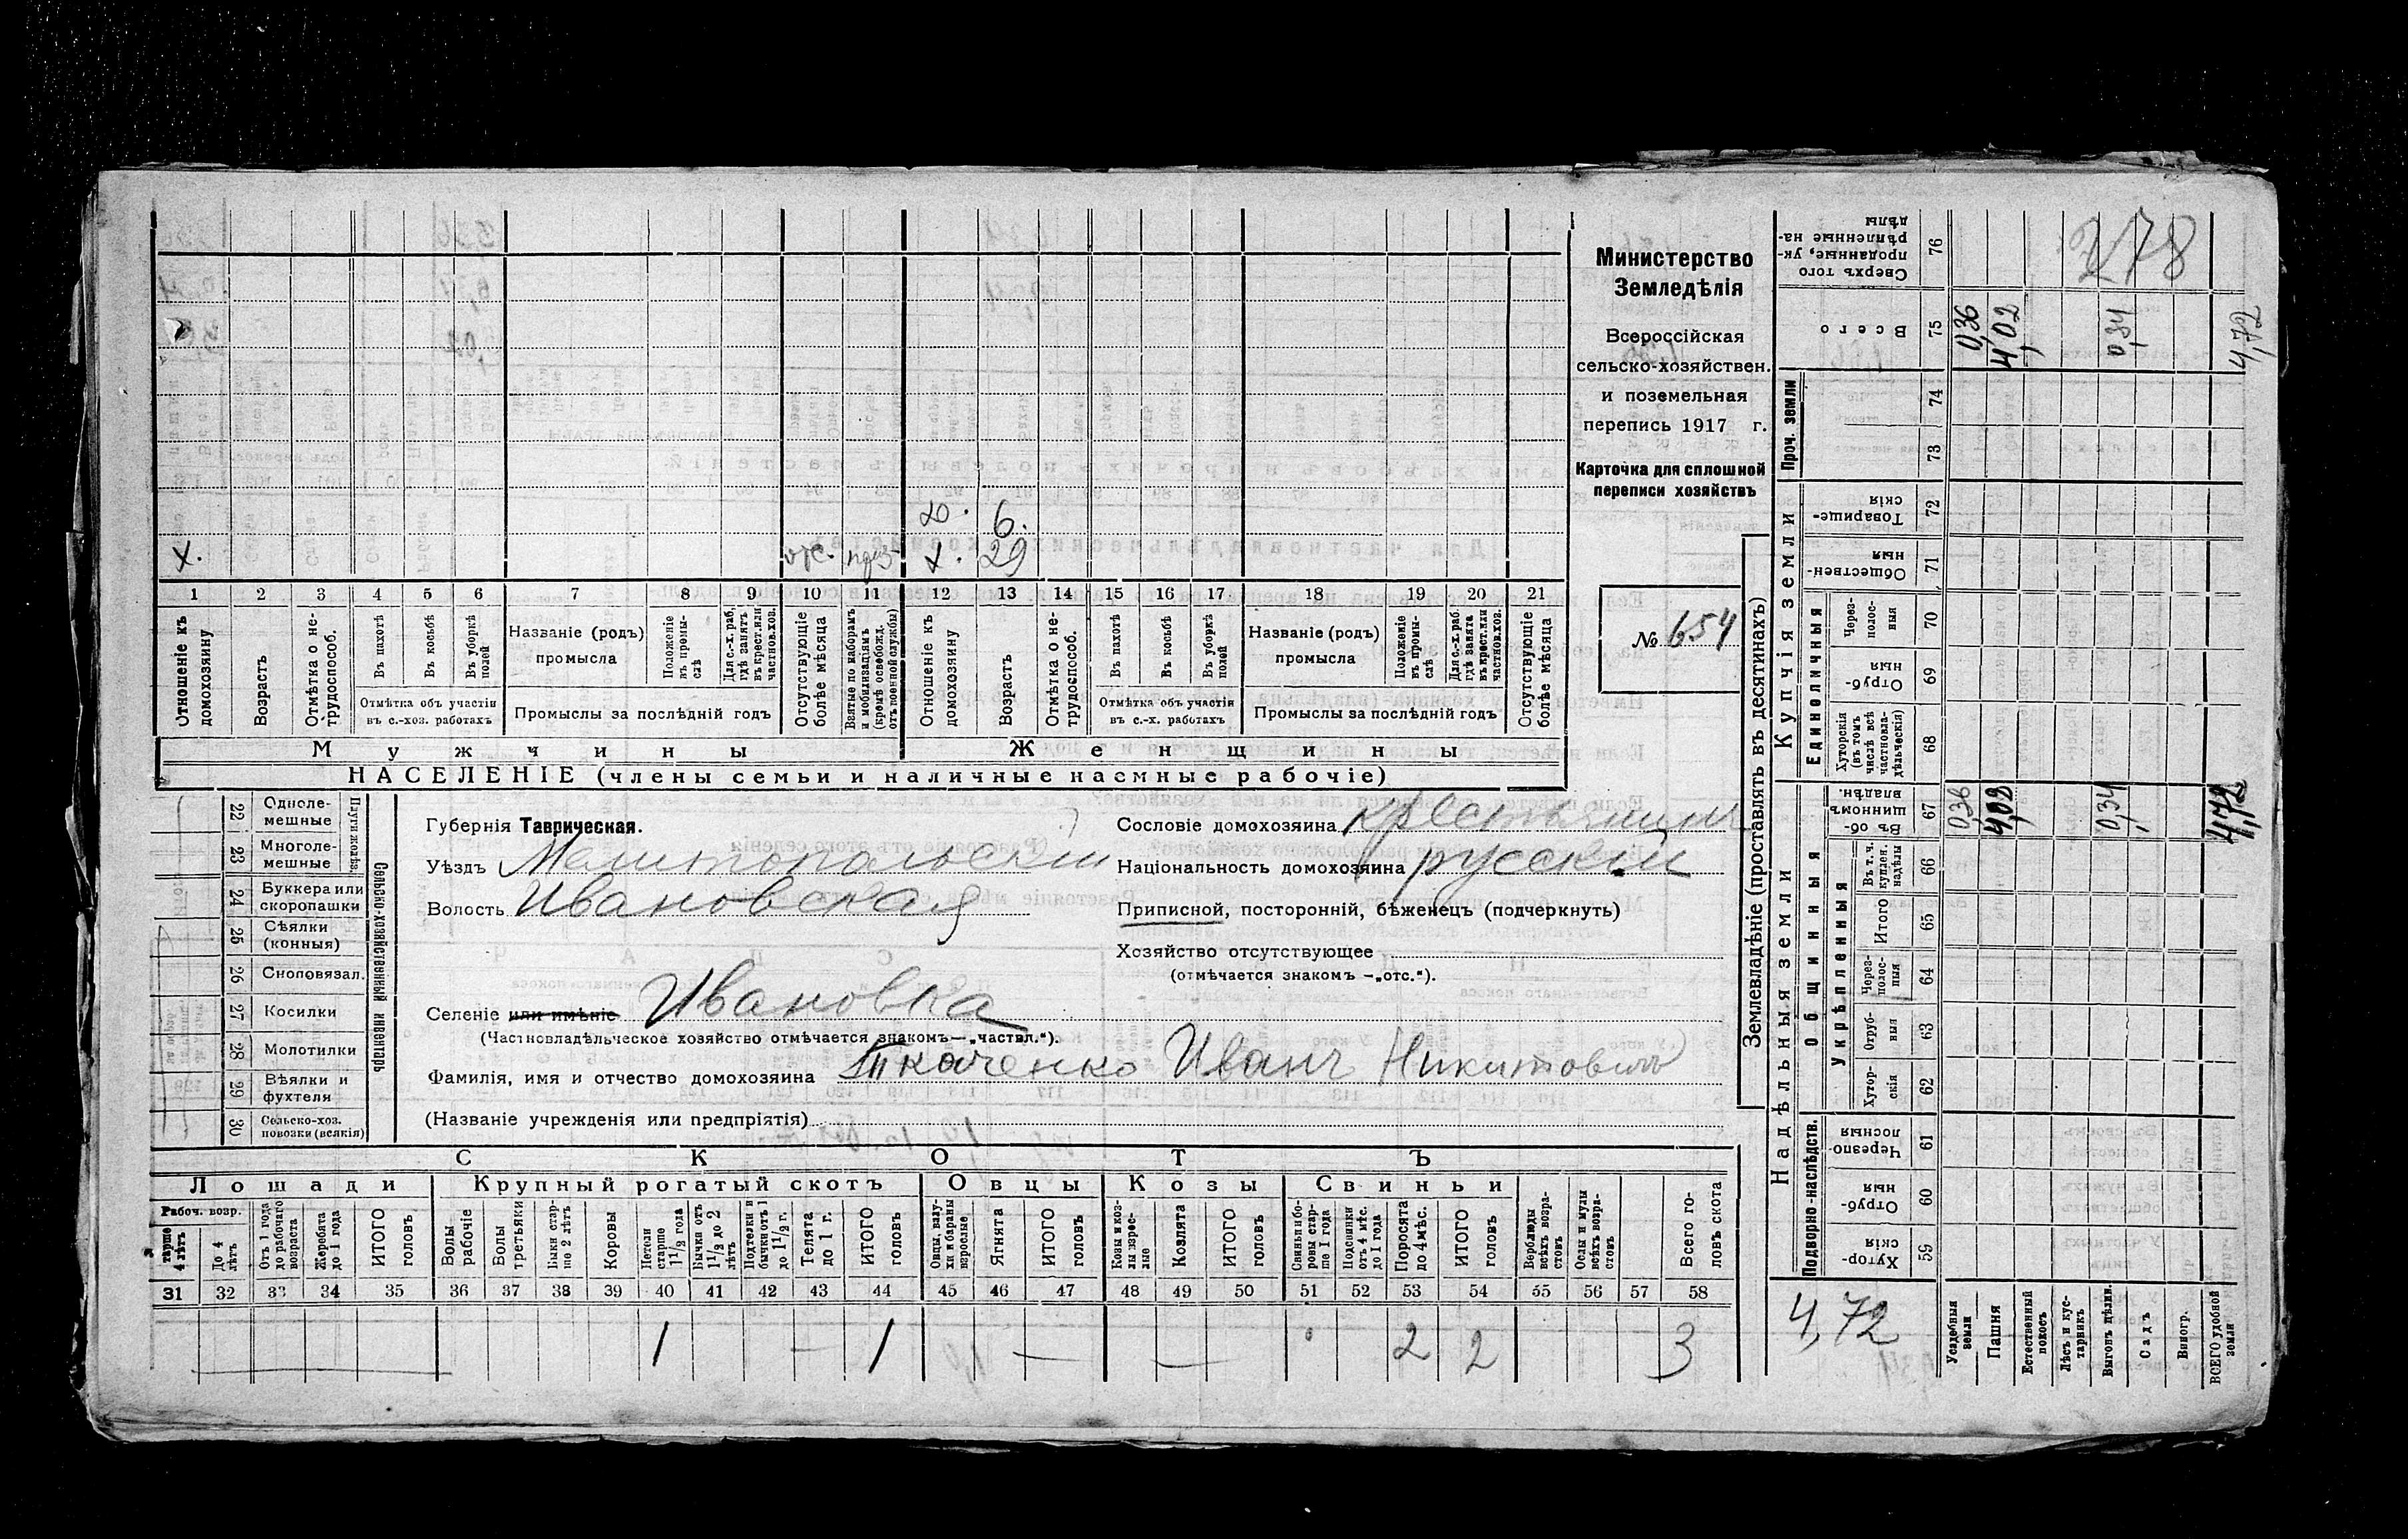 Министерство
Земледѣлія
Всероссійская
сельско-хозяйствен.
и поземельная
перепись 1917 г.
Карточка для сплошной
переписи хозяйствъ
№ 654
д. 6.
х. отс. моб х. 29
1 2 3 4 5 6 7 8 9 10 11 12 13 14 15 16 17 18 19 20 21
Отношеніе къ домохозяину
Возрастъ
Отмѣтка о не-трудоспособ.
Въ пахотѣ
Въ косьбѣ
Въ уборкѣ полей
Отмѣтка объ участіи въ с.-хоз. работахъ
Названіе (родъ) промысла
Положеніе въ промы-слѣ
Для с.-х. раб. гдѣ занятъ въ крест. или частновл. хоз.
Промыслы за послѣдній годъ
Отсутствующіе болѣе мѣсяца
Взятые по наборамъ и мобилизаціямъ (кромѣ освобожд. отъ военной службы)
Отношеніе къ домохозяину
Возрастъ
Отмѣтка о не-трудоспособ.
Въ пахотѣ
Въ косьбѣ
Въ уборкѣ полей
Отмѣтка объ участіи въ с.-х. работахъ
Названіе (родъ) промысла
Положеніе въ промы-слѣ
Для с.-х. раб. гдѣ занята въ крест. или частновл. хоз.
Промыслы за послѣдній годъ
Отсутствующіе болѣе мѣсяца
Мужчины Женщины
НАСЕЛЕНІЕ (члены семьи и наличные наемные рабочіе)
Сельско-хозяйственный инвентарь
22 Одноле-мешные
23 Многоле-мешные
24 Буккера или скоропашки
25 Сѣялки (конныя)
26 Сноповязал.
27 Косилки
28 Молотилки
29 Вѣялки и фухтеля
30 Сельско-хоз. повозки (всякія)
Губернія Таврическая.
Уѣздъ Мелитопольскій
Волость Ивановская
Селеніе или имѣніе Ивановка
(Частновладѣльческое хозяйство отмѣчается знакомъ—„частвл.“).
Фамилія, имя и отчество домохозяина Ткаченко Иванъ Никитовичъ
(Названіе учрежденія или предпріятія)
Сословіе домохозяина крестьянинъ
Національность домохозяина русскій
Приписной, посторонній, бѣженецъ (подчеркнуть)
Хозяйство отсутствующее
(отмѣчается знакомъ —„отс.“).
СКОТЪ
Лошади Крупный рогатый скотъ Овцы Козы Свиньи
Рабоч. возр.
старше 4 лѣтъ
До 4 лѣтъ
Отъ 1 года до рабочаго возраста
Жеребята до 1 года
ИТОГО головъ
Волы рабочіе
Волы третьяки
Быки стар-ше 2 лѣтъ
Коровы
Нетели старше 1½ года
Бычки отъ 1½ до 2 лѣтъ
Подтелки и бычки отъ 1 до 1½ г.
Телята до 1 г.
ИТОГО головъ
Овцы, валу-хи и бараны взрослые
Ягнята
ИТОГО головъ
Козы и коз-лы взрос-лые
Козлята
ИТОГО головъ
Свиньи и бо-ровы стар-ше 1 года
Подсвинки отъ 4 мѣс. до 1 года
Поросята до 4 мѣс.
ИТОГО головъ
Верблюды всѣхъ возра-стовъ
Ослы и мулы всѣхъ возра-стовъ
Всего го-ловъ скота
31 32 33 34 35 36 37 38 39 40 41 42 43 44 45 46 47 48 49 50 51 52 53 54 55 56 57 58
— 1 — 1 — — 2 2 3
Землевладѣніе (проставлять въ десятинахъ)
Купчія земли
Надѣльныя земли
Сверхъ того проданные, ук-рѣпленные на-дѣлы 76
278
Всего 75 0,36 4,02 0,34 4,72
Проч. земли 74 73
Товарище-скія 72
Обществен-ныя 71
Единоличныя
Через-полос-ныя 70
Отруб-ныя 69
Хуторскія (въ томъ числѣ всѣ частновла-дѣльческія) 68
Общинныя
Въ об-щинномъ владѣн. 67 0,36 4,02 0,34 4,72
Укрѣпленныя
Въ т. ч. куплен. надѣлы 66
Итого 65
Через-полос-ныя 64
Отруб-ныя 63
Хутор-скія 62
Подворно-наслѣдств.
Черезпо-лосныя 61
Отруб-ныя 60
Хутор-скія 59
4,72
Усадебныя земли
Пашня
Естественный покосъ
Лѣсъ и кус-тарникъ
Выгонъ цѣлин.
Садъ
Виногр.
ВСЕГО удобной земли